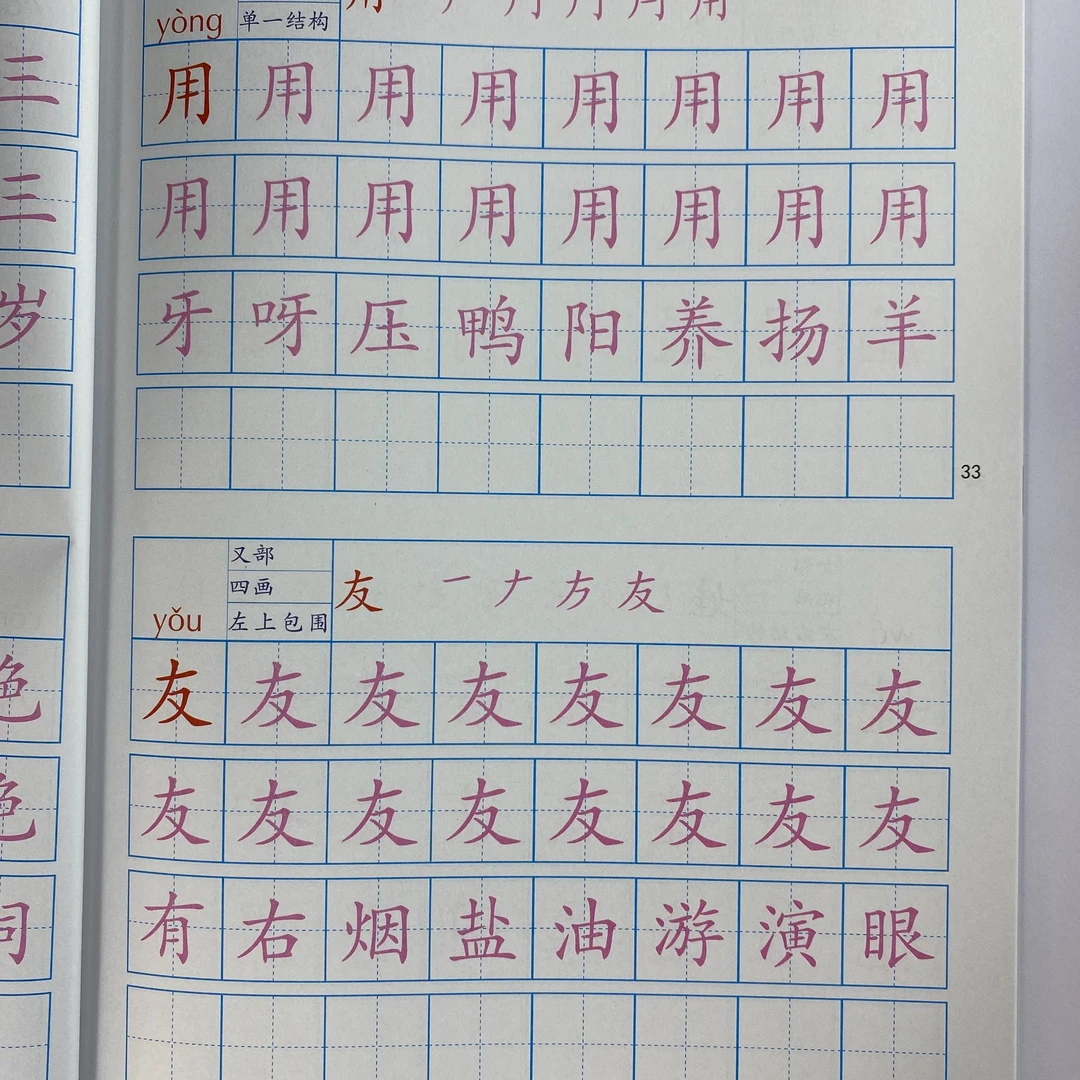 三
三
岁
绝
绝
词
yòng
单一结构
用 用 用 用 用 用 用 用
用 用 用 用 用 用 用 用
牙 呀 压 鸭 阳 养 扬 羊
33
yǒu
又部
四画
左上包围
友 一 ナ 方 友
友 友 友 友 友 友 友 友
友 友 友 友 友 友 友 友
有 右 烟 盐 油 游 演 眼